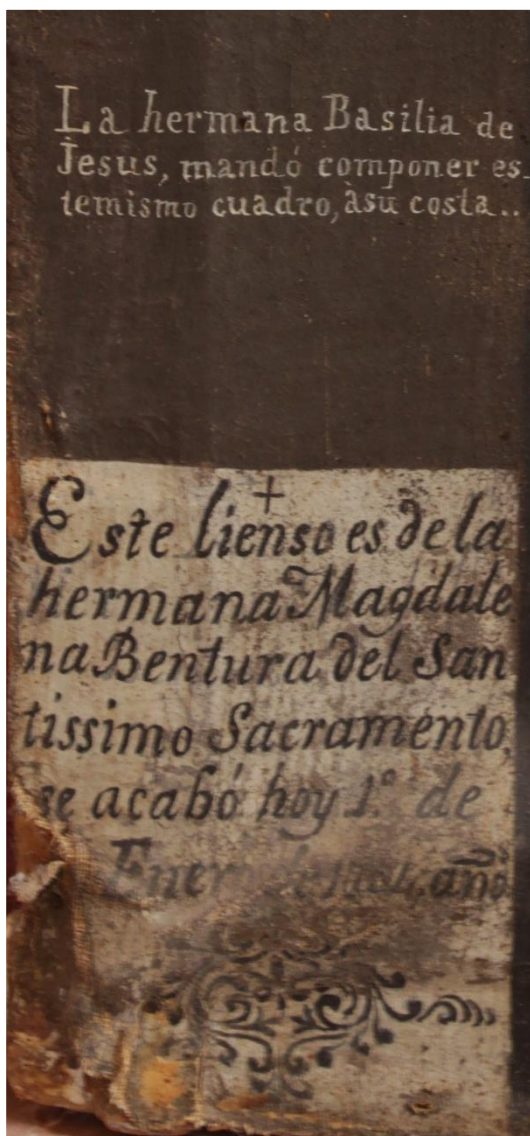 La hermana Basilia de
Jesus, mandó componer es-
temismo cuadro, àsu costa..
+
Este lienso es de la
hermana Magdale
na Bentura del San
tissimo Sacramento,
se acabó hoy 1º de
Enero de año